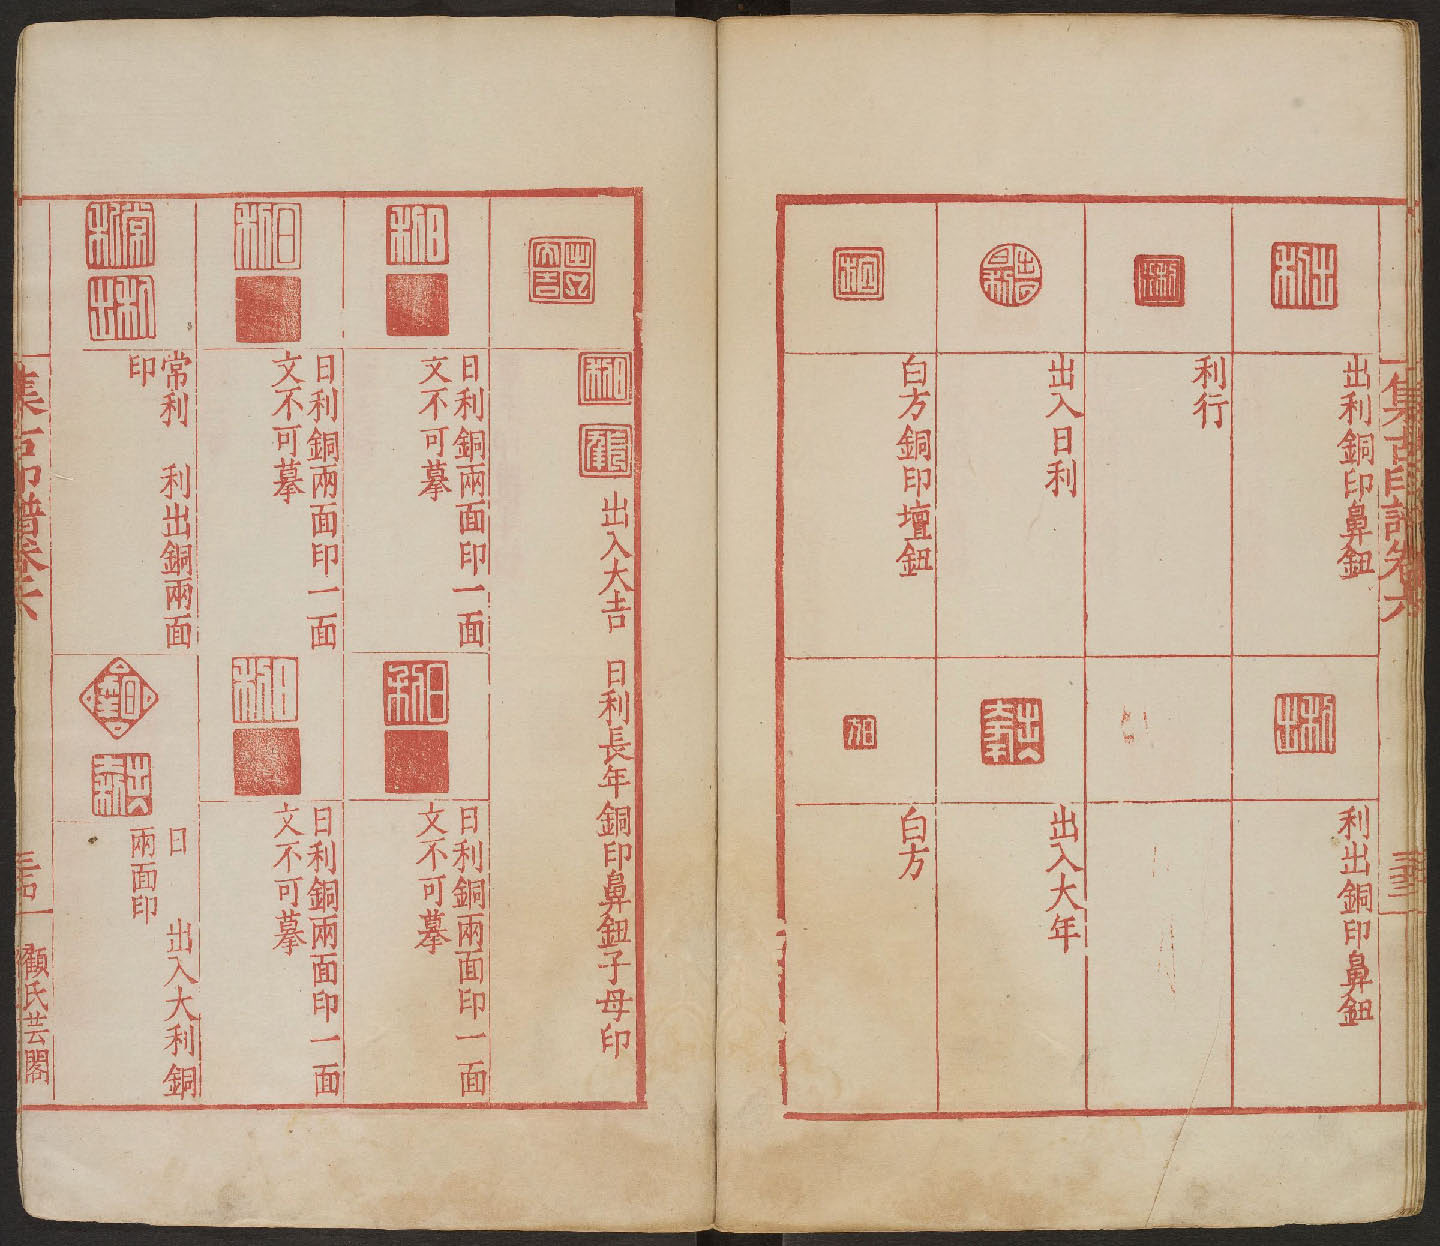 集古印譜卷六
出利銅印鼻鈕
利行
出入日利
白方銅印壇鈕
利出銅印鼻鈕
出入大年
白方
出入大吉 日利長年銅印鼻鈕子母印
日利銅兩面印一面
文不可摹
日利銅兩面印一面
文不可摹
常利 利出銅兩面
印
日利銅兩面印一面
文不可摹
日利銅兩面印一面
文不可摹
日 出入大利銅
兩面印
集古印譜卷六
顧氏芸閣